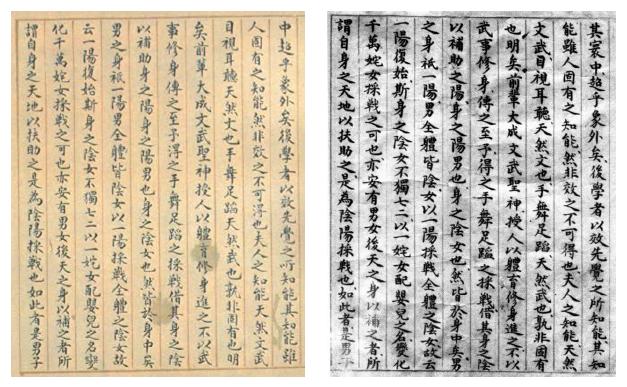 中超乎象外矣後學者以效先覺之所知能其知能雖
人固有之知能然非效之不可得也夫人之知能天然文武
目視耳聽天然文也手舞足蹈天然武也孰非固有也明
矣前輩大成文武聖神授人以體育修身進之不以武
事修身傳之至予得之手舞足蹈之採戰借其身之陰
以補助身之陽身之陽男也身之陰女也然皆於身中矣
男之身祇一陽男全體皆陰女以一陽採戰全體之陰女故
云一陽復始斯身之陰女不獨七二以一姹女配嬰兒之名變
化千萬姹女採戰之可也亦安有男女後天之身以補之者所
謂自身之天地以扶助之是為陰陽採戰也如此者是男子
其寰中超乎象外矣後學者以效先覺之所知能其知
能雖人固有之知能然非效之不可得也夫人之知能天然
文武目視耳聽天然文也手舞足蹈天然武也孰非固有
也明矣前輩大成文武聖神授人以體育修身進之不以
武事修身傳之至予得之手舞足蹈之採戰借其身之陰
以補助身之陽身之陽男也身之陰女也然皆於身中矣男
之身祇一陽男全體皆陰女以一陽採戰全體之陰女故云
一陽復始斯身之陰女不獨七二以一姹女配嬰兒之名變化
千萬姹女採戰之可也亦安有男女後天之身以補之者所
謂自身之天地以扶助之是為陰陽採戰也如此者是男子